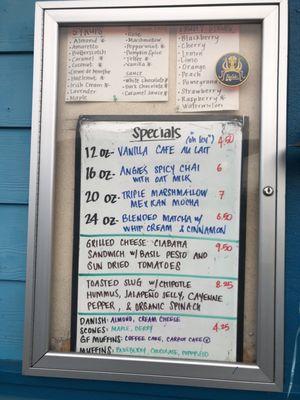 SYRUPS
Almond
Amaretto
Butterscotch
Caramel
Coconut
Creme de Menthe
Hazelnut
Irish Cream
Lavender
Rose
Marshmallow
Peppermint
Pumpkin Spice
Toffee
Vanilla
SAUCE
White Chocolate
Dark Chocolate
Caramel Sauce
Blackberry
Cherry
Lemon
Lime
Orange
Peach
Pomegranate
Strawberry
Raspberry
Watermelon
SPECIALS
12 OZ- VANILLA CAFE AU LAIT 4.50
16 OZ- ANGIES SPICY CHAI 6
WITH OAT MILK
20 OZ- TRIPLE MARSHMALLOW 7
MEXICAN MOCHA
24 OZ- BLENDED MATCHA W/ 6.50
WHIP CREAM & CINNAMON
GRILLED CHEESE CIABATTA 9.50
SANDWICH W/ BASIL PESTO AND
SUN DRIED TOMATOES
TOASTED SLUG W/ CHIPOTLE 8.25
HUMMUS, JALAPEÑO JELLY, CAYENNE
PEPPER, & ORGANIC SPINACH
DANISH: ALMOND, CREAM CHEESE
SCONES: MAPLE, BERRY 4.25
GF MUFFINS: COFFEE CAKE, CARROT CAKE
MUFFINS: BLUEBERRY, CHOCOLATE,